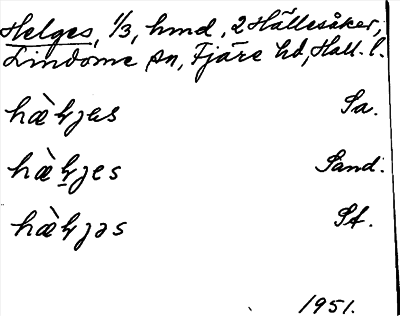 Helges, 1/3, hmd, 2 Hällesåker,
Lindome sn, Fjäre hd, Hall. l.
hæ̀ɫjes Sa.
hæ̀ɫjes Sand.
hæ̀ɫjəs Sf.
1951.